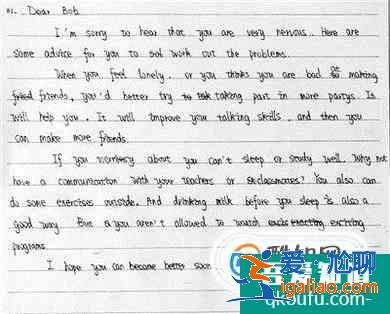 Dear Bob
I'm sorry to hear that you are very nervous. Here are
some advice for you to sol work out the problems.
When you feel lonely, or you thinks you are bad at making
friend friends, you'd better try to tak taking part in more partys. Is
will help you. It will improve your talking skills, and then you
can make more friends.
If you worry about you can't sleep or study well. Why not
have a communication with your teachers or classmates? You also can
do some exercises outside. And drinking milk before you sleep is also a
good way. But you aren't allowed to watch exciting
programs.
I hope you can become better soon
爱尬聊
qk5ufu.com